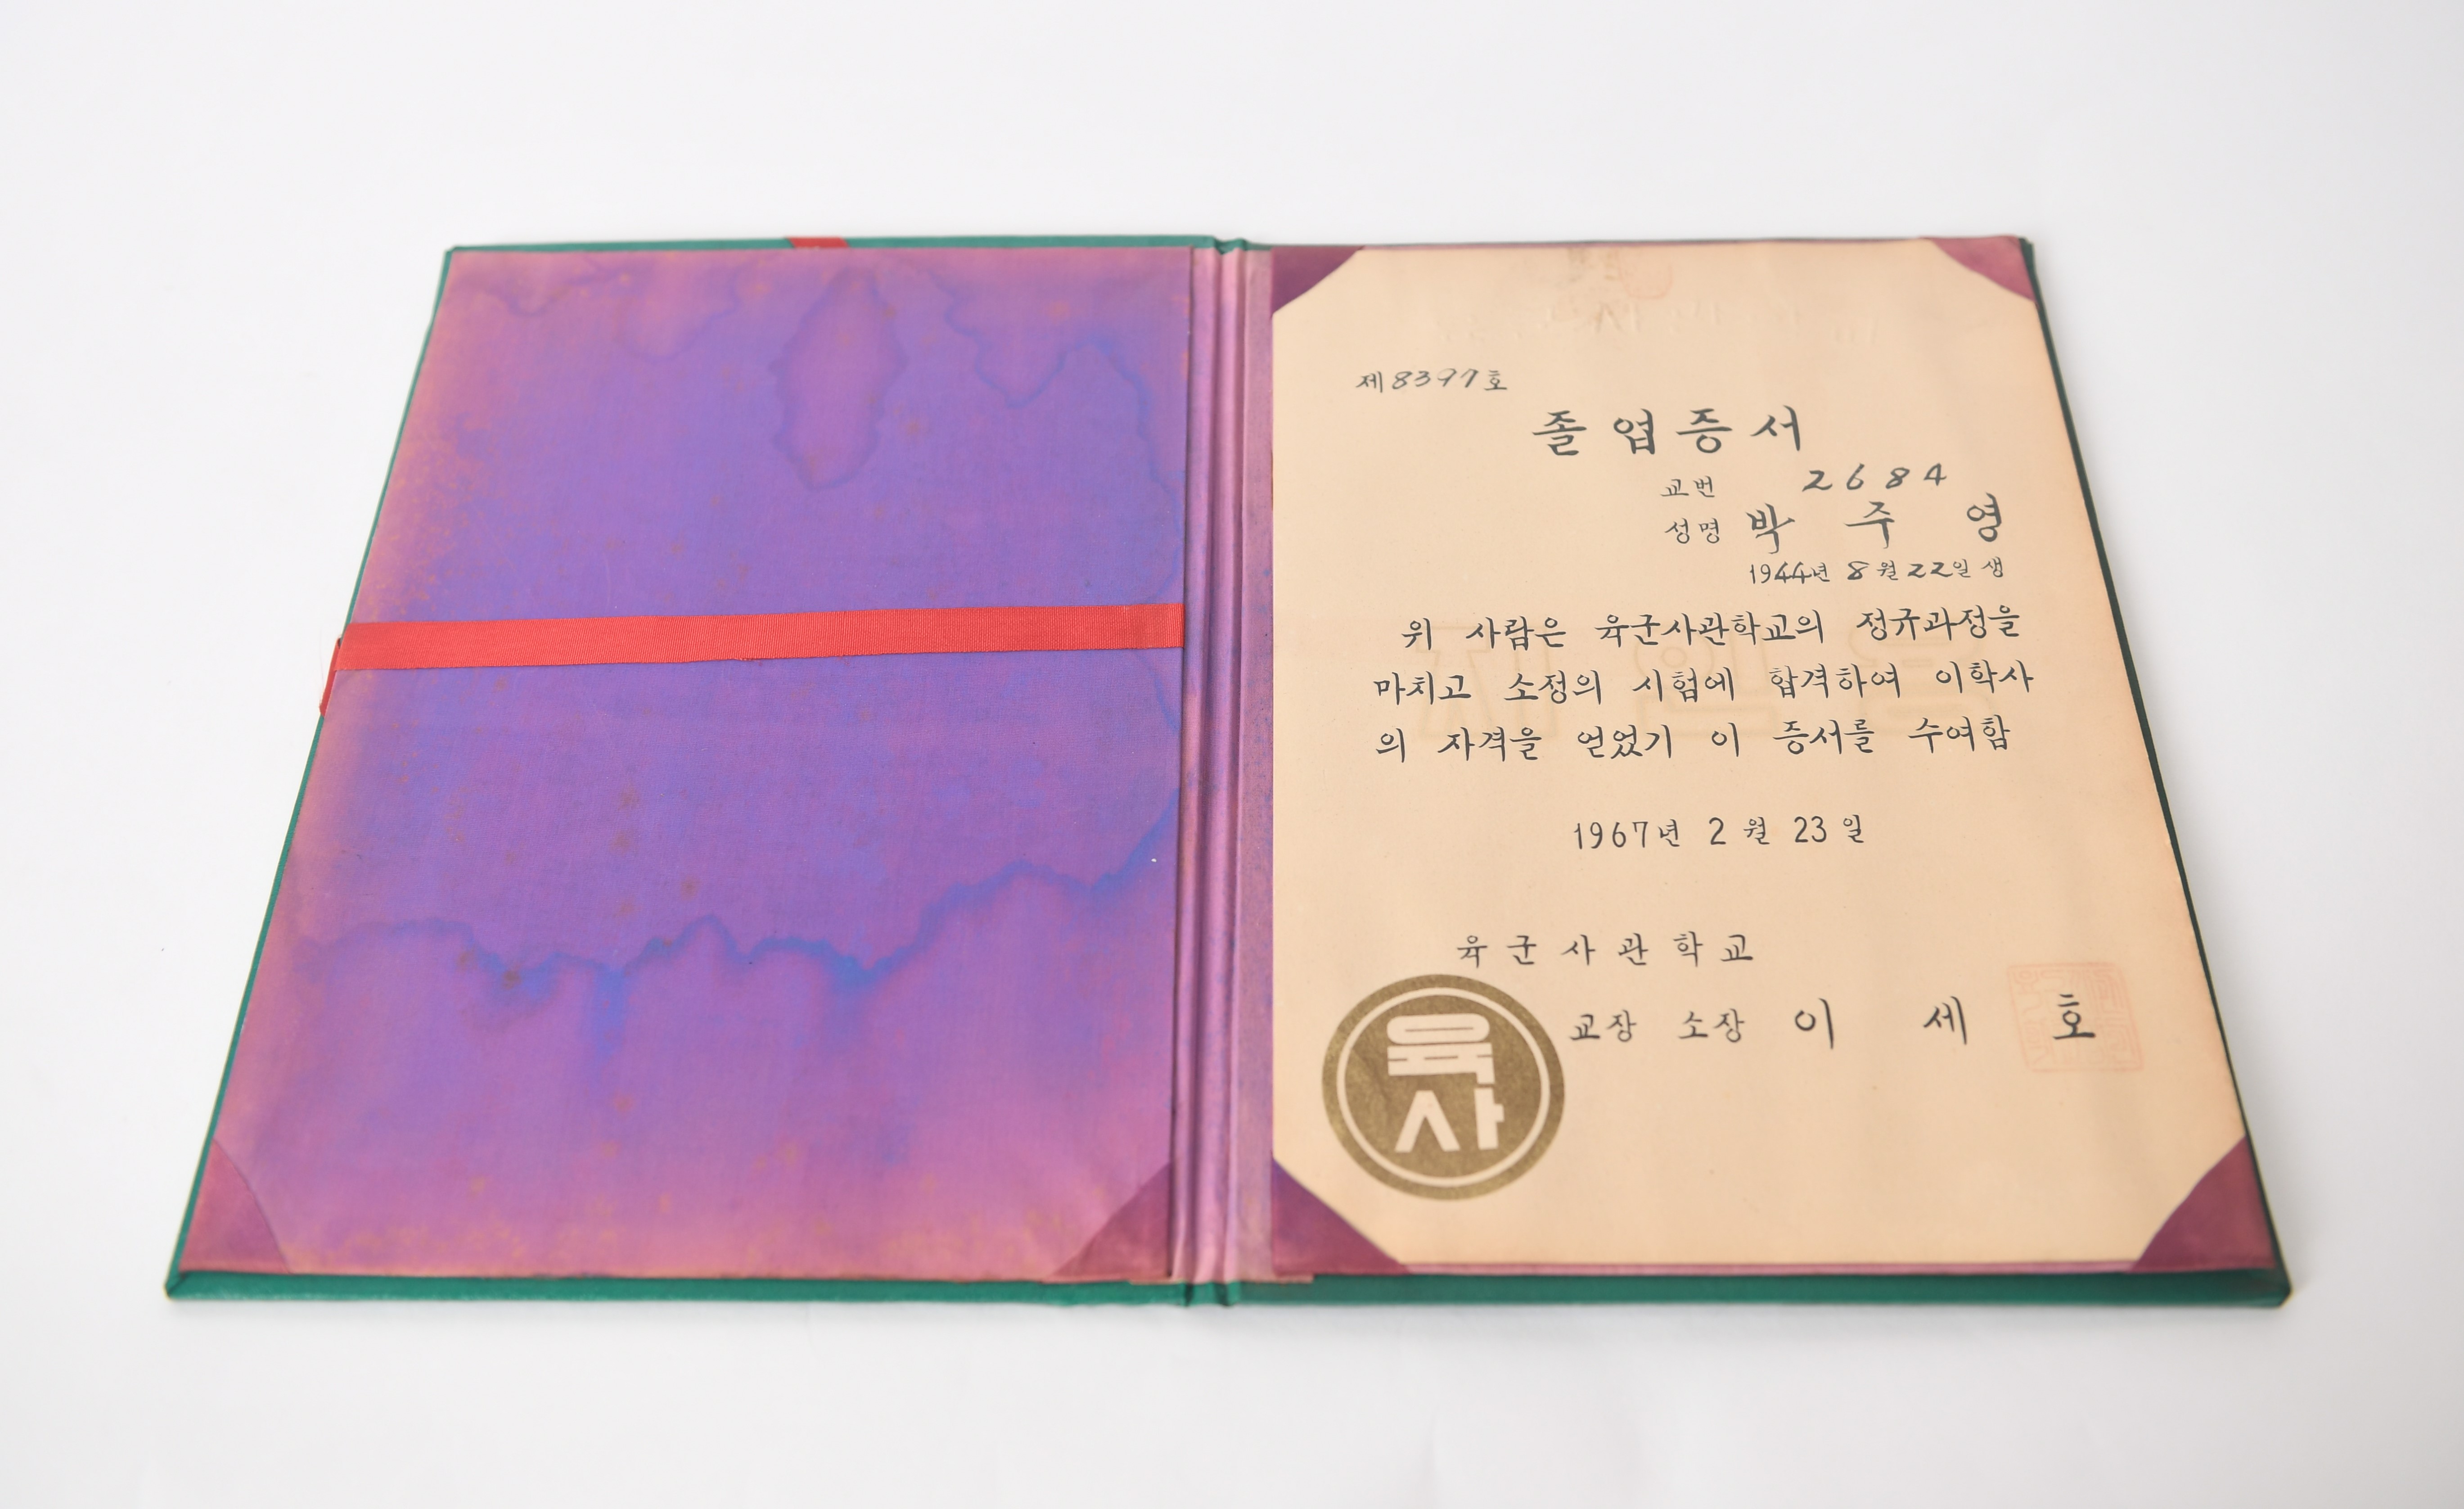 제8397호
졸업증서
교번 2684
성명 박주영
1944년 8월 22일 생
위 사람은 육군사관학교의 정규과정을
마치고 소정의 시험에 합격하여 이학사
의 자격을 얻었기 이 증서를 수여함
1967년 2월 23일
육군사관학교
교장 소장 이세호
육사